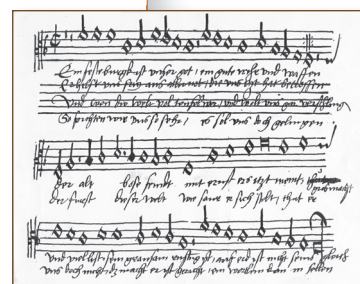 Ein feste burg ist unser got / ein gute wehr und waffen
Er hilft uns frey aus aller not / die uns itzt hat betroffen
Und wen die welt vol teufel wer / und wolt uns gar verschling
So furchten wir uns so sehr / es sol uns doch gelingen
der alt bose feindt mit ernst ers itzt meint / gros macht
der furst dieser welt wie saur er sich stelt / thut er
und viel list / sein grausam rustung ist / auf erd ist nicht seins gleich
uns doch nicht / macht er ist gericht / ein wortlein kan in fellen